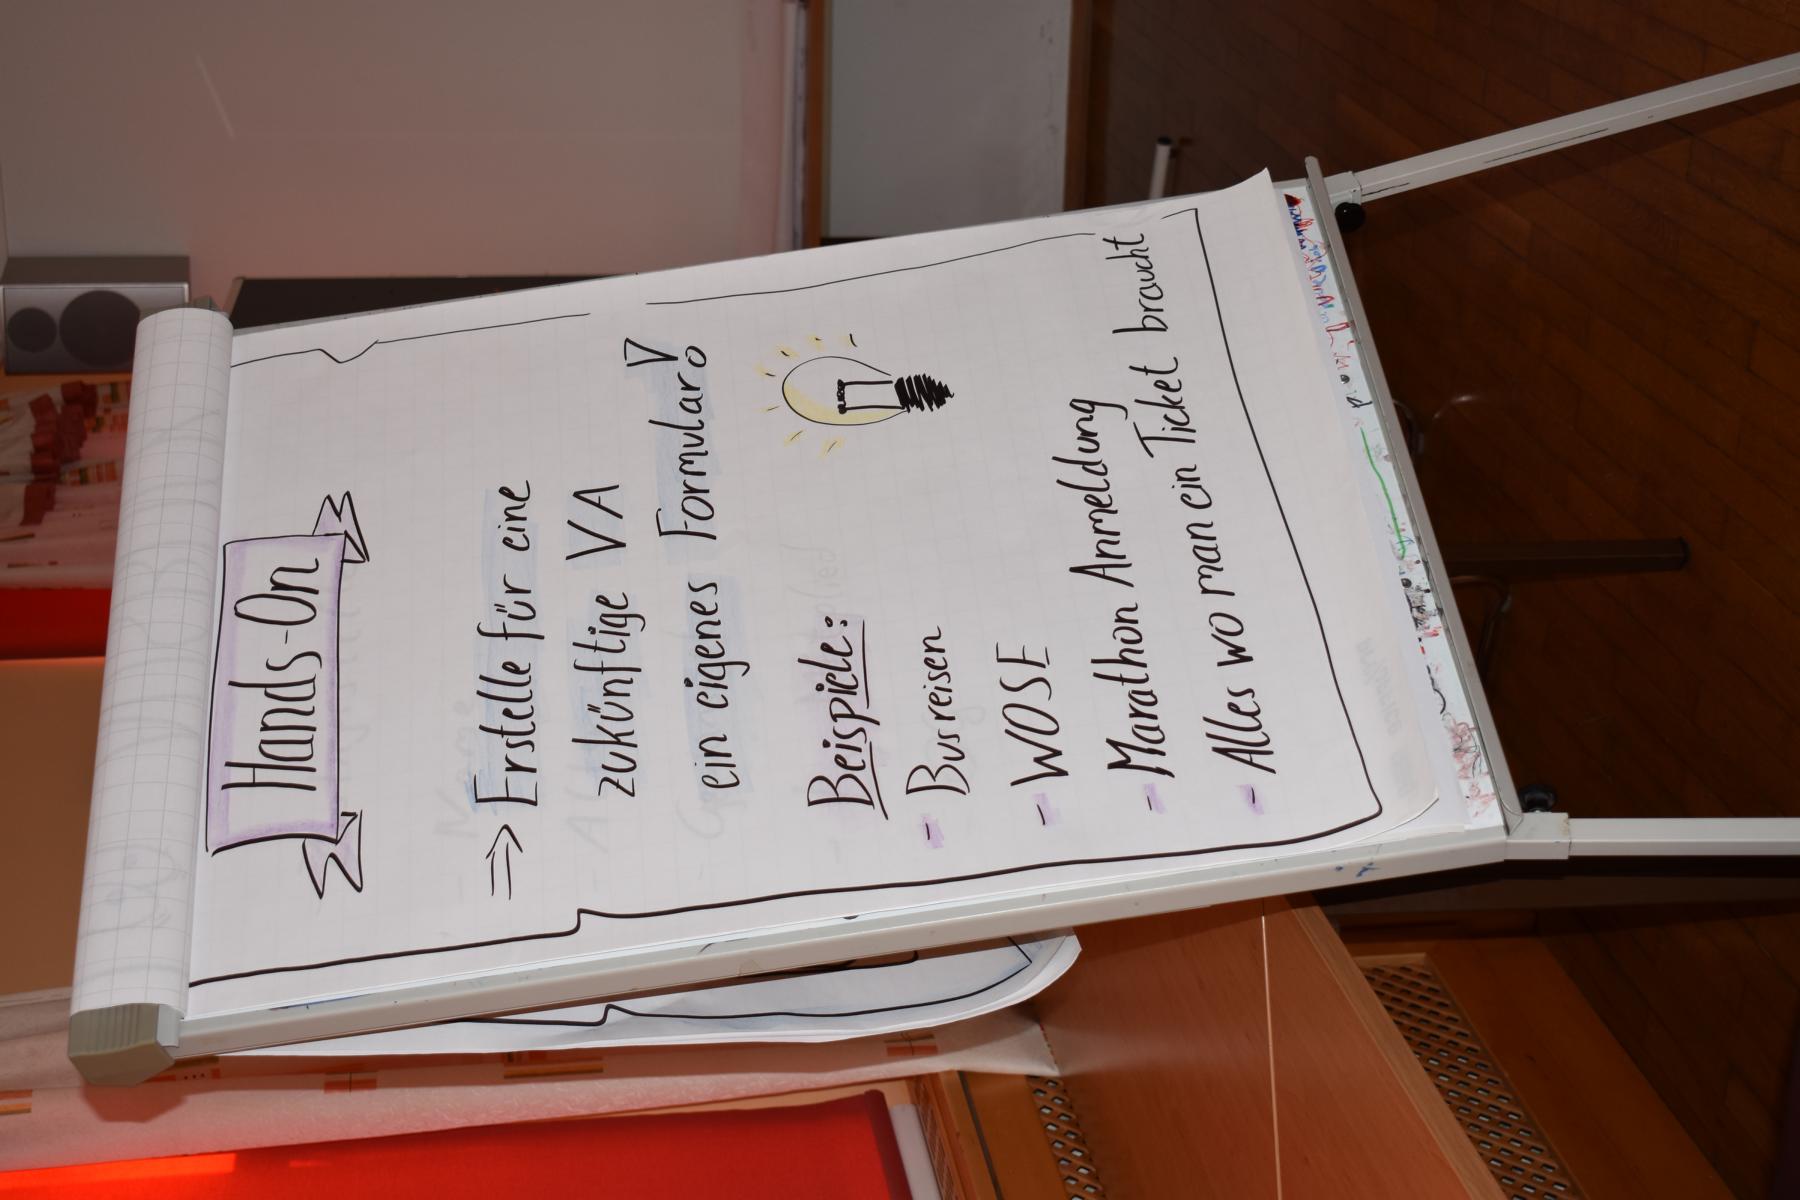 Hands-On
=> Erstelle für eine
zukünftige VA
ein eigenes Formular!
Beispiele:
- Busreisen
- WOSE
- Marathon Anmeldung
- Alles wo man ein Ticket braucht